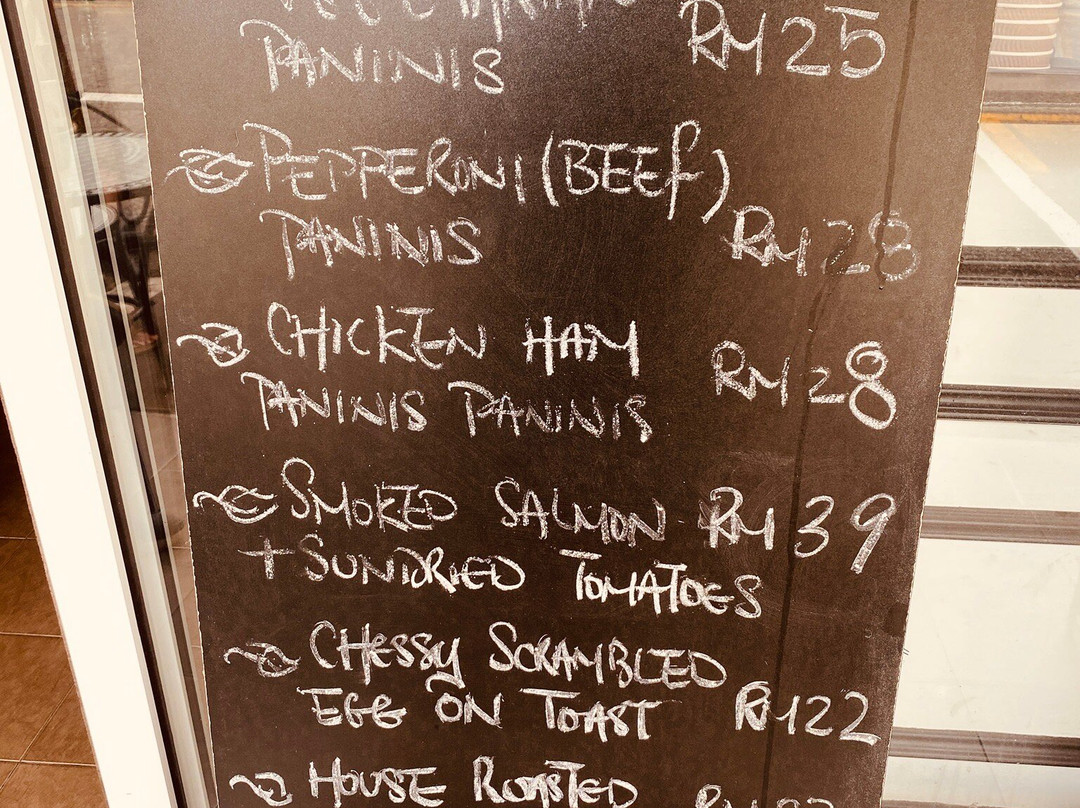 PANINIS RM25
PEPPERONI (BEEF)
PANINIS RM28
CHICKEN HAM
PANINIS PANINIS RM28
SMOKED SALMON RM39
+ SUNDRIED TOMATOES
CHESSY SCRAMBLED
EGG ON TOAST RM22
HOUSE ROASTED